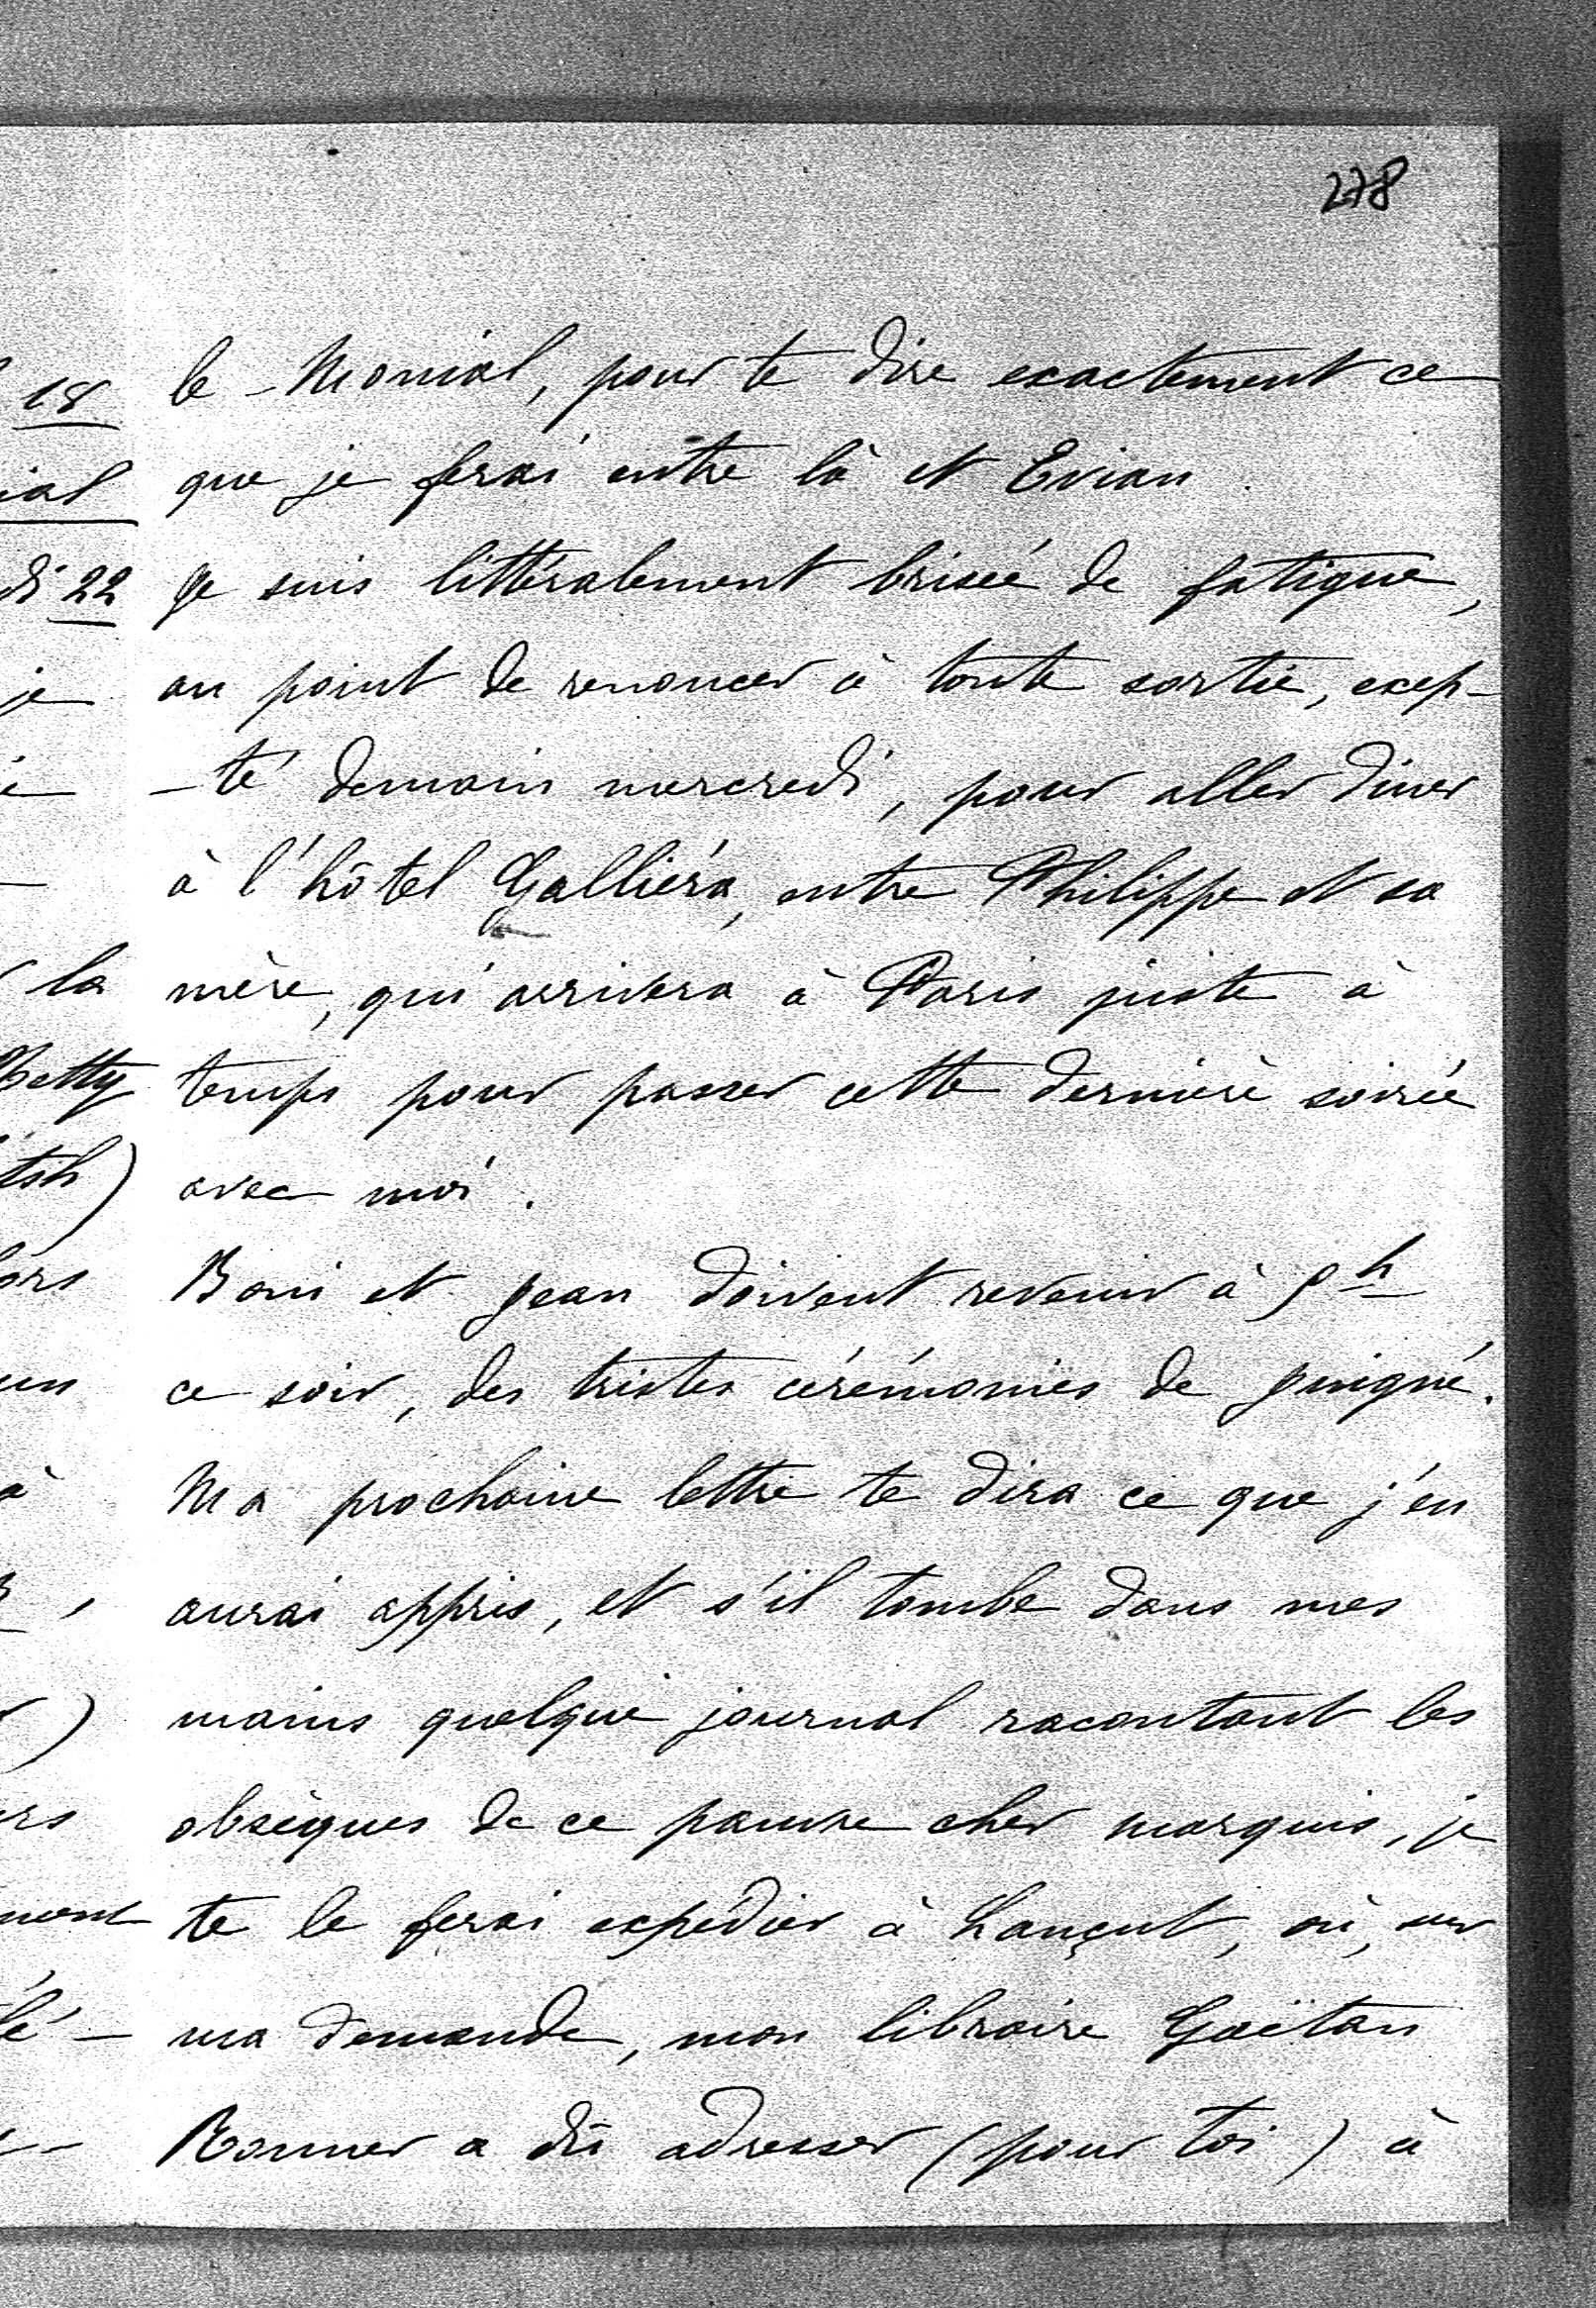 278
le-Monial, pour te dire exactement ce
que je ferai entre là et Evian.
Je suis littéralement brisée de fatigue,
au point de renoncer à toute sortie, excep-
-té demain mercredi, pour aller dîner
à l'hôtel Galliéra, entre Philippe et sa
mère, qui arrivera à Paris juste à
temps pour passer cette dernière soirée
avec moi.
Boni et Jean doivent revenir à
ce soir, des tristes cérémonies de Juigné.
Ma prochaine lettre te dira ce que j'en
aurai appris, et s'il tombe dans mes
mains quelque journal racontant les
obsèques de ce pauvre cher marquis, je
te le ferai expédier à Lançut, où, sur
ma demande, mon libraire Gaëtan
a dû adresser (pour toi) à
18
ial
di 22
je
la
Betty
tsh)